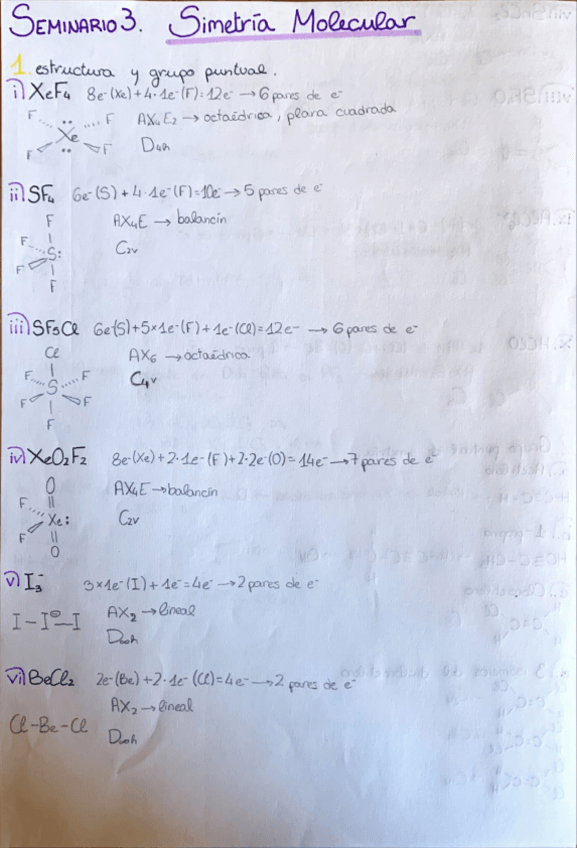 SEMINARIO 3. SIMETRÍA MOLECULAR
1. estructura y grupo puntual.
i) XeF₄ 8e⁻(Xe) + 4·1e⁻(F) = 12e⁻ → 6 pares de e⁻
F F AX₄E₂ → octaédrica, plana cuadrada
Xe
F F D₄h
ii) SF₄ 6e⁻(S) + 4·1e⁻(F) = 10e⁻ → 5 pares de e⁻
F AX₄E → balancín
F S: C₂v
F
F
iii) SF₅Cl 6e⁻(S) + 5×1e⁻(F) + 1e⁻(Cl) = 12e⁻ → 6 pares de e⁻
Cl AX₆ → octaédrica
F F C₄v
S
F F
F
iv) XeO₂F₂ 8e⁻(Xe) + 2·1e⁻(F) + 2·2e⁻(O) = 14e⁻ → 7 pares de e⁻
O AX₄E → balancín
F
Xe: C₂v
F
O
v) I₃⁻ 3×1e⁻(I) + 1e⁻ = 4e⁻ → 2 pares de e⁻
I – I⊖ – I AX₂ → lineal
D∞h
vi) BeCl₂ 2e⁻(Be) + 2·1e⁻(Cl) = 4e⁻ → 2 pares de e⁻
AX₂ → lineal
Cl-Be-Cl
D∞h